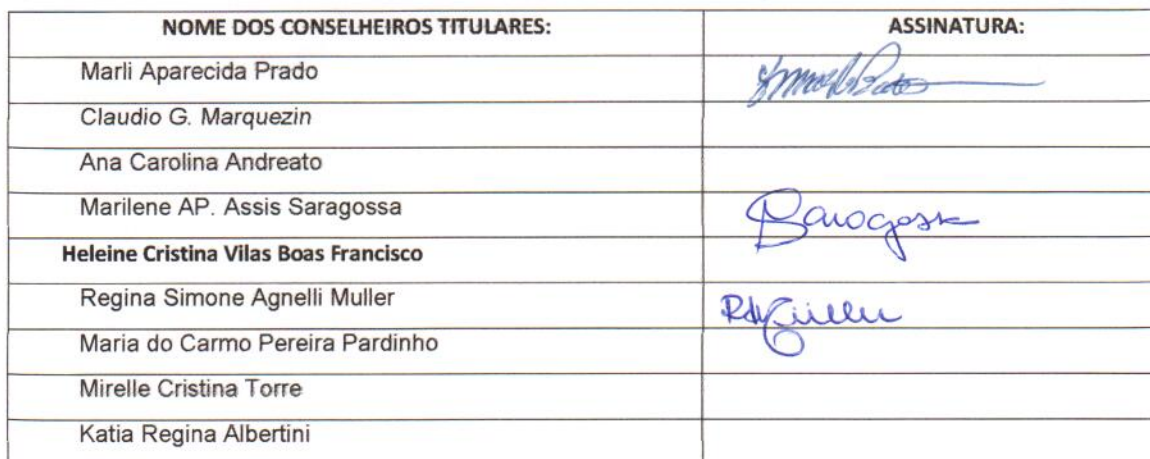 NOME DOS CONSELHEIROS TITULARES: ASSINATURA:
Marli Aparecida Prado
Claudio G. Marquezin
Ana Carolina Andreato
Marilene AP. Assis Saragossa Saragossa
Heleine Cristina Vilas Boas Francisco
Regina Simone Agnelli Muller
Maria do Carmo Pereira Pardinho
Mirelle Cristina Torre
Katia Regina Albertini